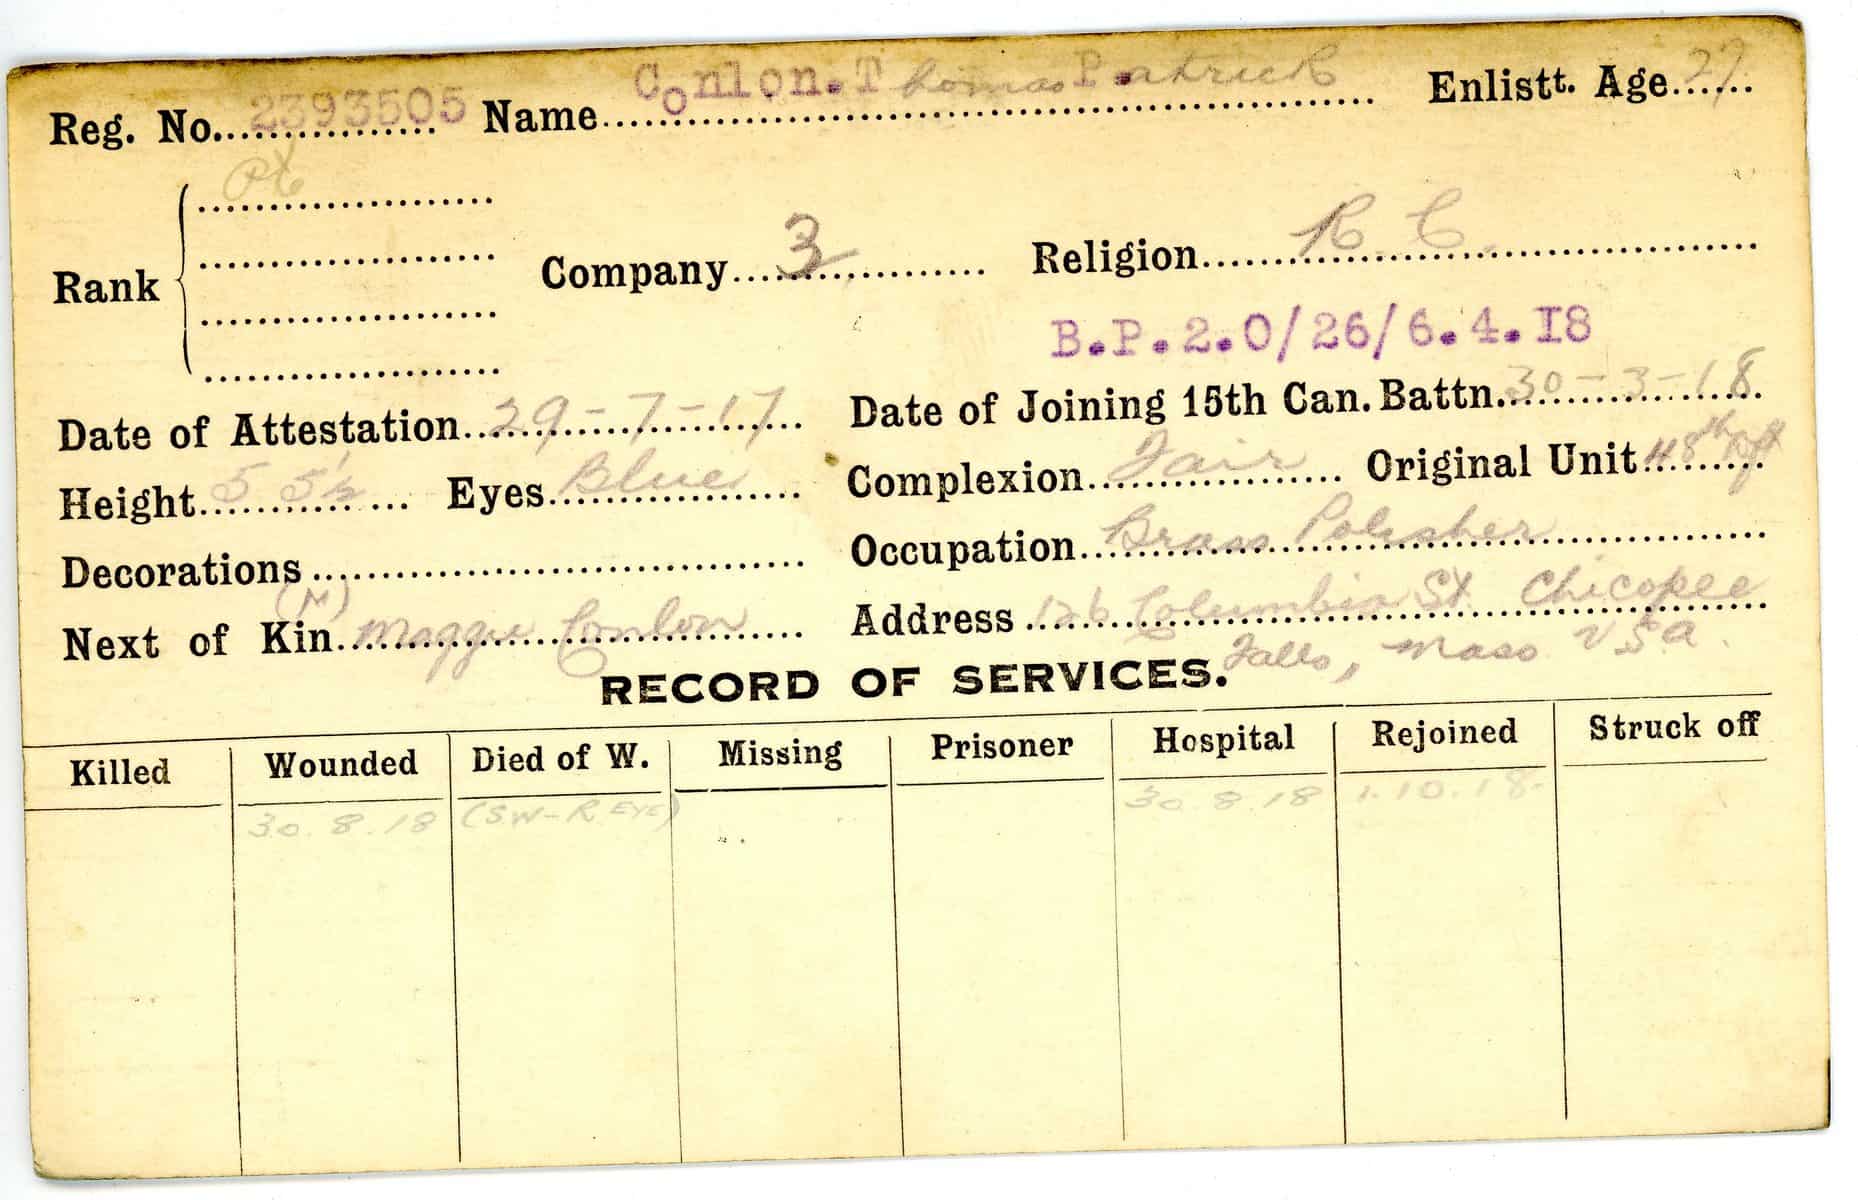 Reg. No. 2393505 Name Conlon. Thomas P.atrick Enlistt. Age 27
Pte
Rank Company 3 Religion R. C.
B.P.2.0/26/6.4.I8
Date of Attestation 29-7-17 Date of Joining 15th Can. Battn. 30-3-18
Height 5 5½ Eyes Blue Complexion Fair Original Unit 48th Dft
Decorations Occupation Brass Polisher
(M)
Next of Kin Maggie Conlon Address 126 Columbia St Chicopee
Falls, Mass USA.
RECORD OF SERVICES.
Killed Wounded Died of W. Missing Prisoner Hospital Rejoined Struck off
30.8.18 (SW-R EYE) 30 8.18 1.10.18.